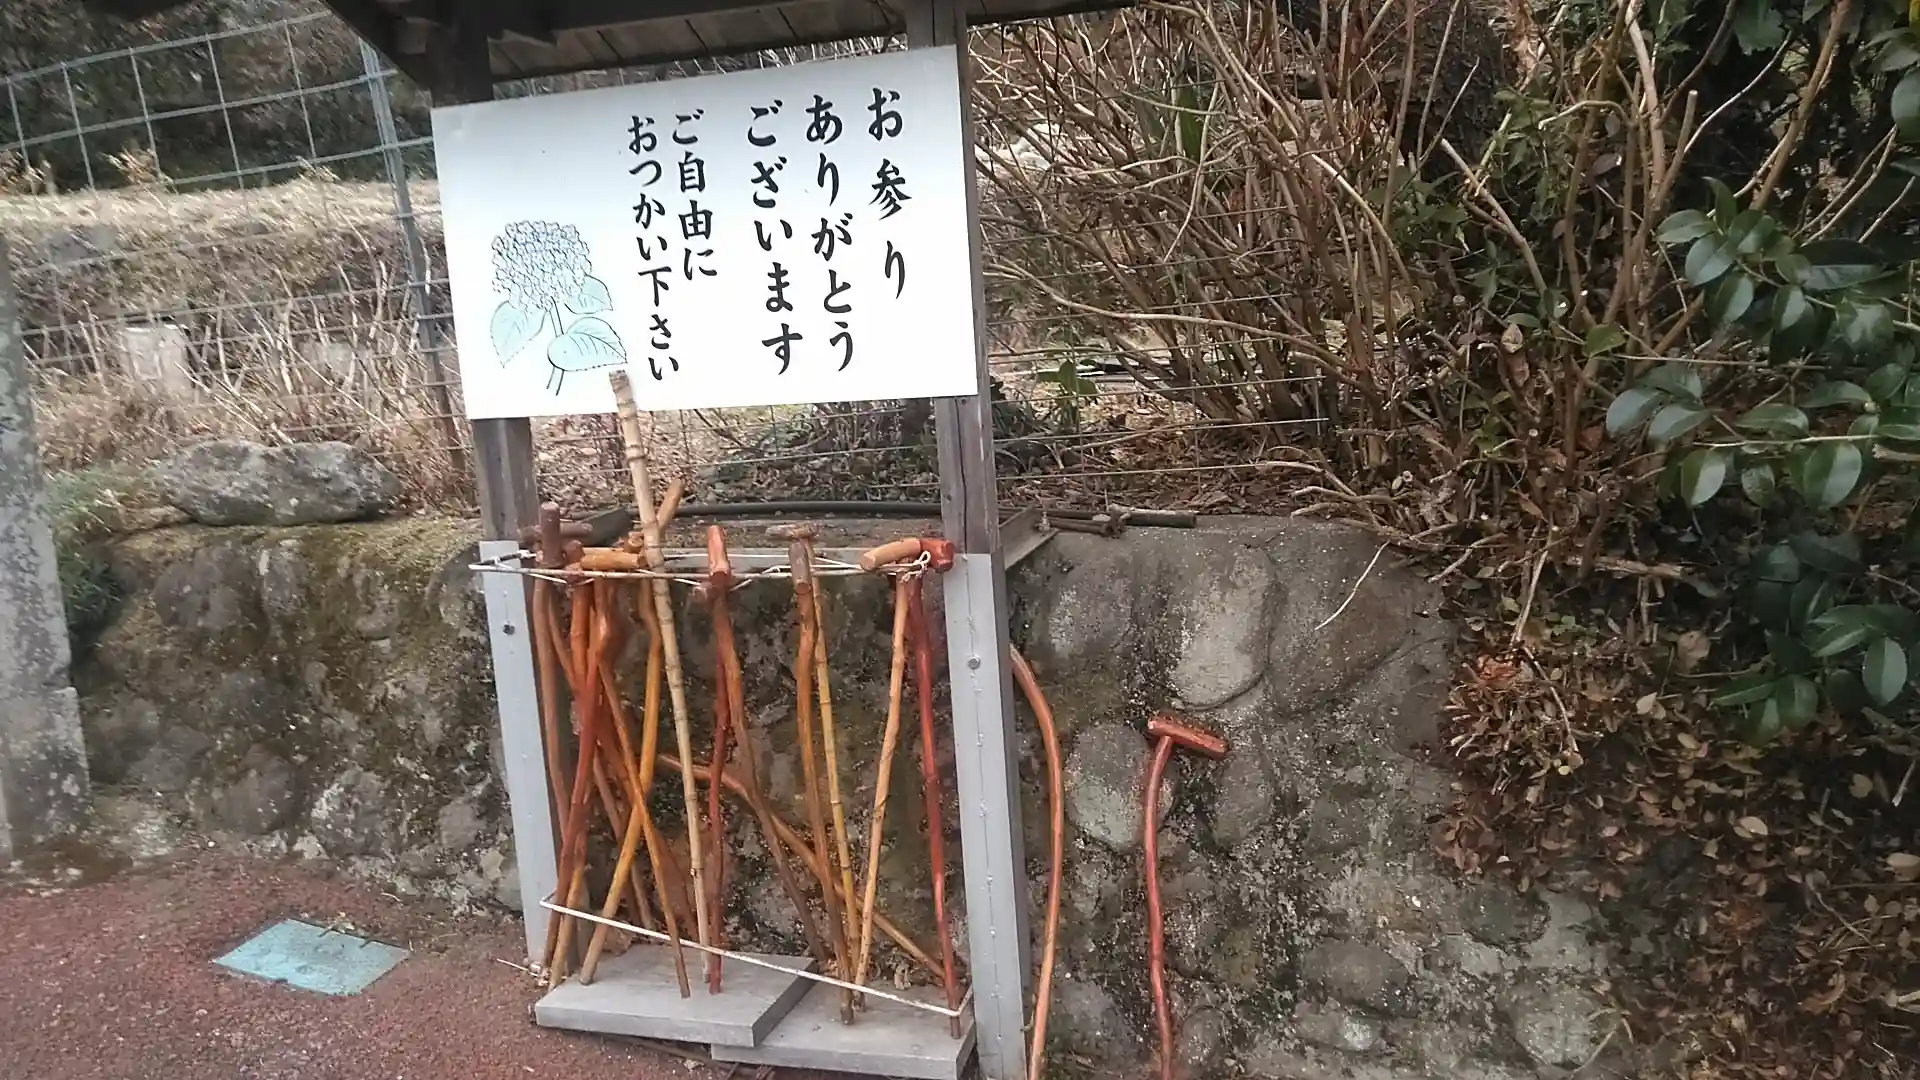 お参り
ありがとう
ございます
ご自由に
おつかい下さい